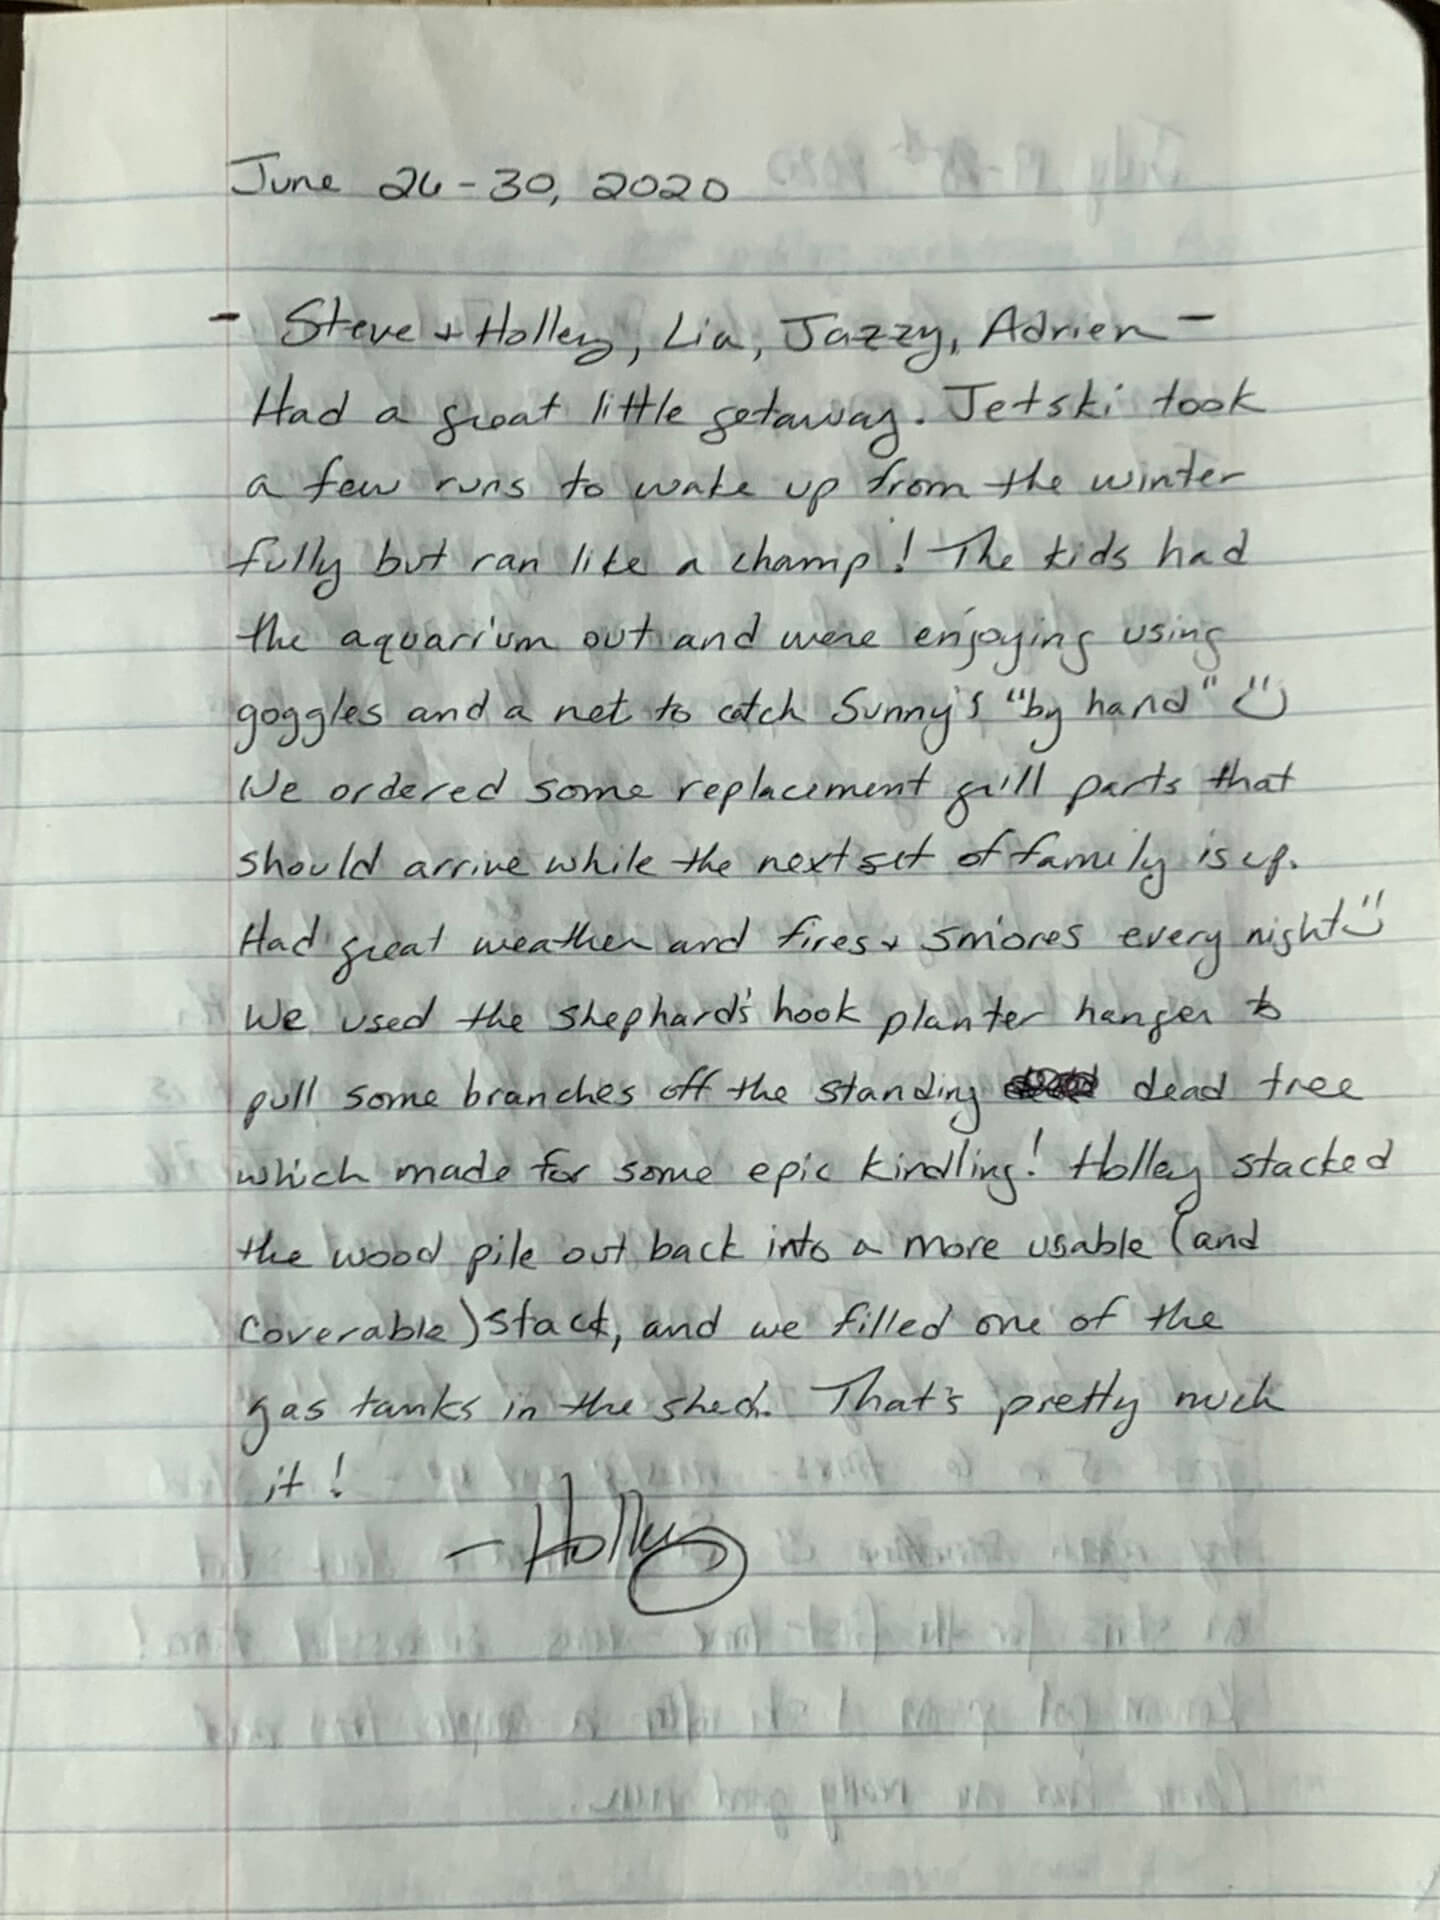 June 26-30, 2020
- Steve + Holley, Lia, Jazzy, Adrien -
Had a great little getaway. Jetski took
a few runs to wake up from the winter
fully but ran like a champ! The kids had
the aquarium out and were enjoying using
goggles and a net to catch Sunny's "by hand" :)
We ordered some replacement grill parts that
should arrive while the next set of family is up.
Had great weather and fires + s'mores every night :)
We used the shephard's hook planter hanger to
pull some branches off the standing dead tree
which made for some epic kindling! Holley stacked
the wood pile out back into a more usable (and
coverable) stack, and we filled one of the
gas tanks in the shed. That's pretty much
it!
- Holley